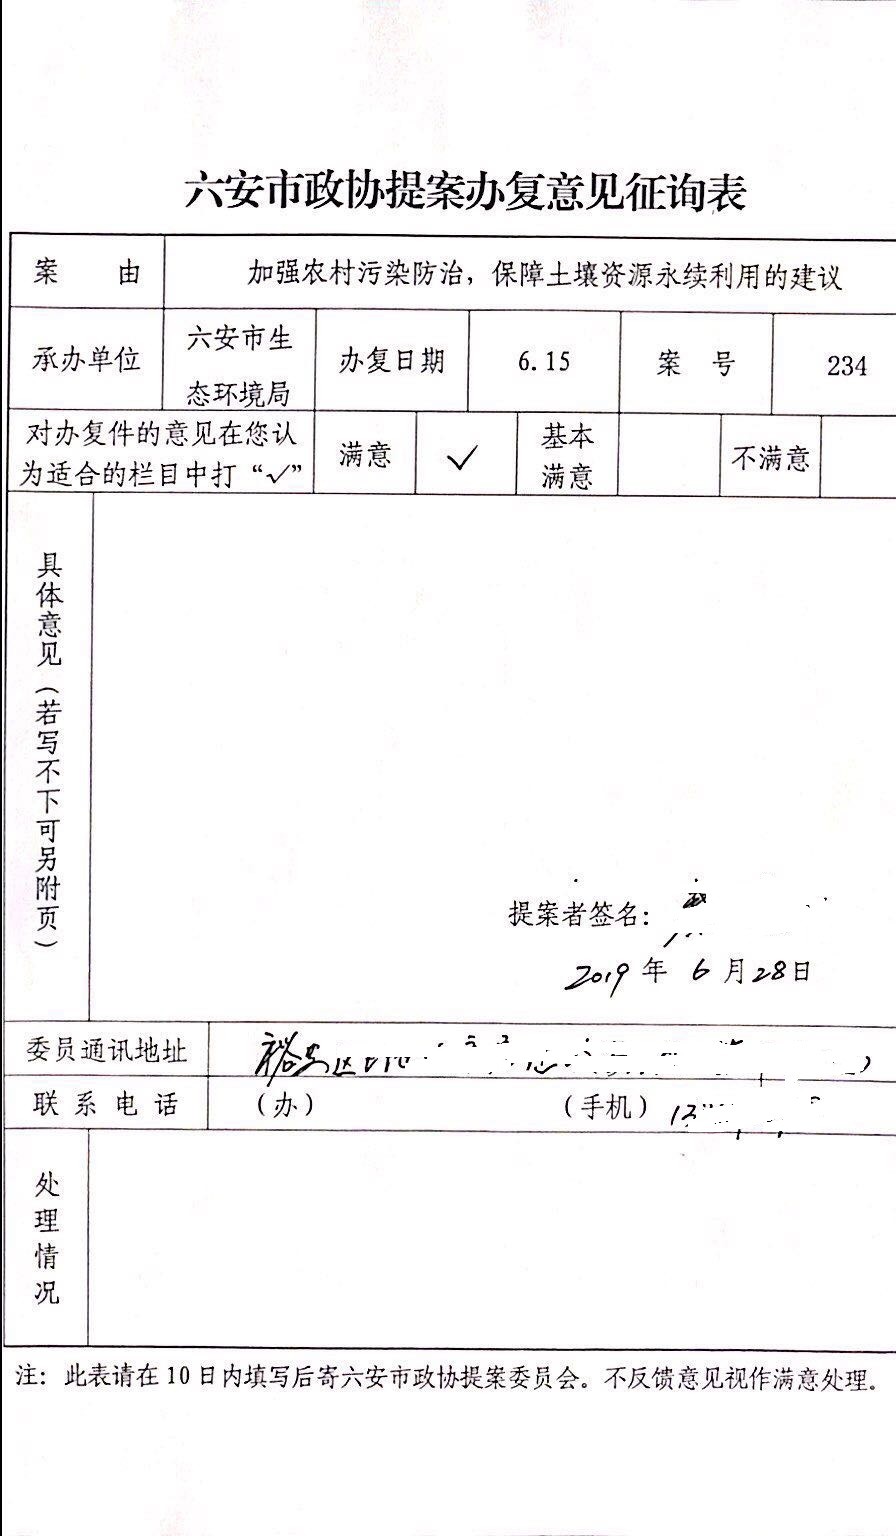 六安市政协提案办复意见征询表
案 由 加强农村污染防治，保障土壤资源永续利用的建议
承办单位 六安市生态环境局 办复日期 6.15 案 号 234
对办复件的意见在您认为适合的栏目中打“√” 满意 √ 基本满意 不满意
具体意见（若写不下可另附页）
提案者签名：
2019 年 6 月 28 日
委员通讯地址 裕安区
联系电话 （办） （手机）
处理情况
注：此表请在 10 日内填写后寄六安市政协提案委员会。不反馈意见视作满意处理。